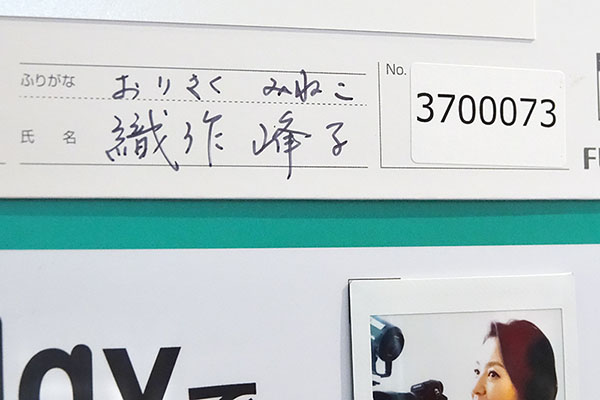 ふりがな おりさく みねこ
氏 名 織作 峰子
No. 3700073